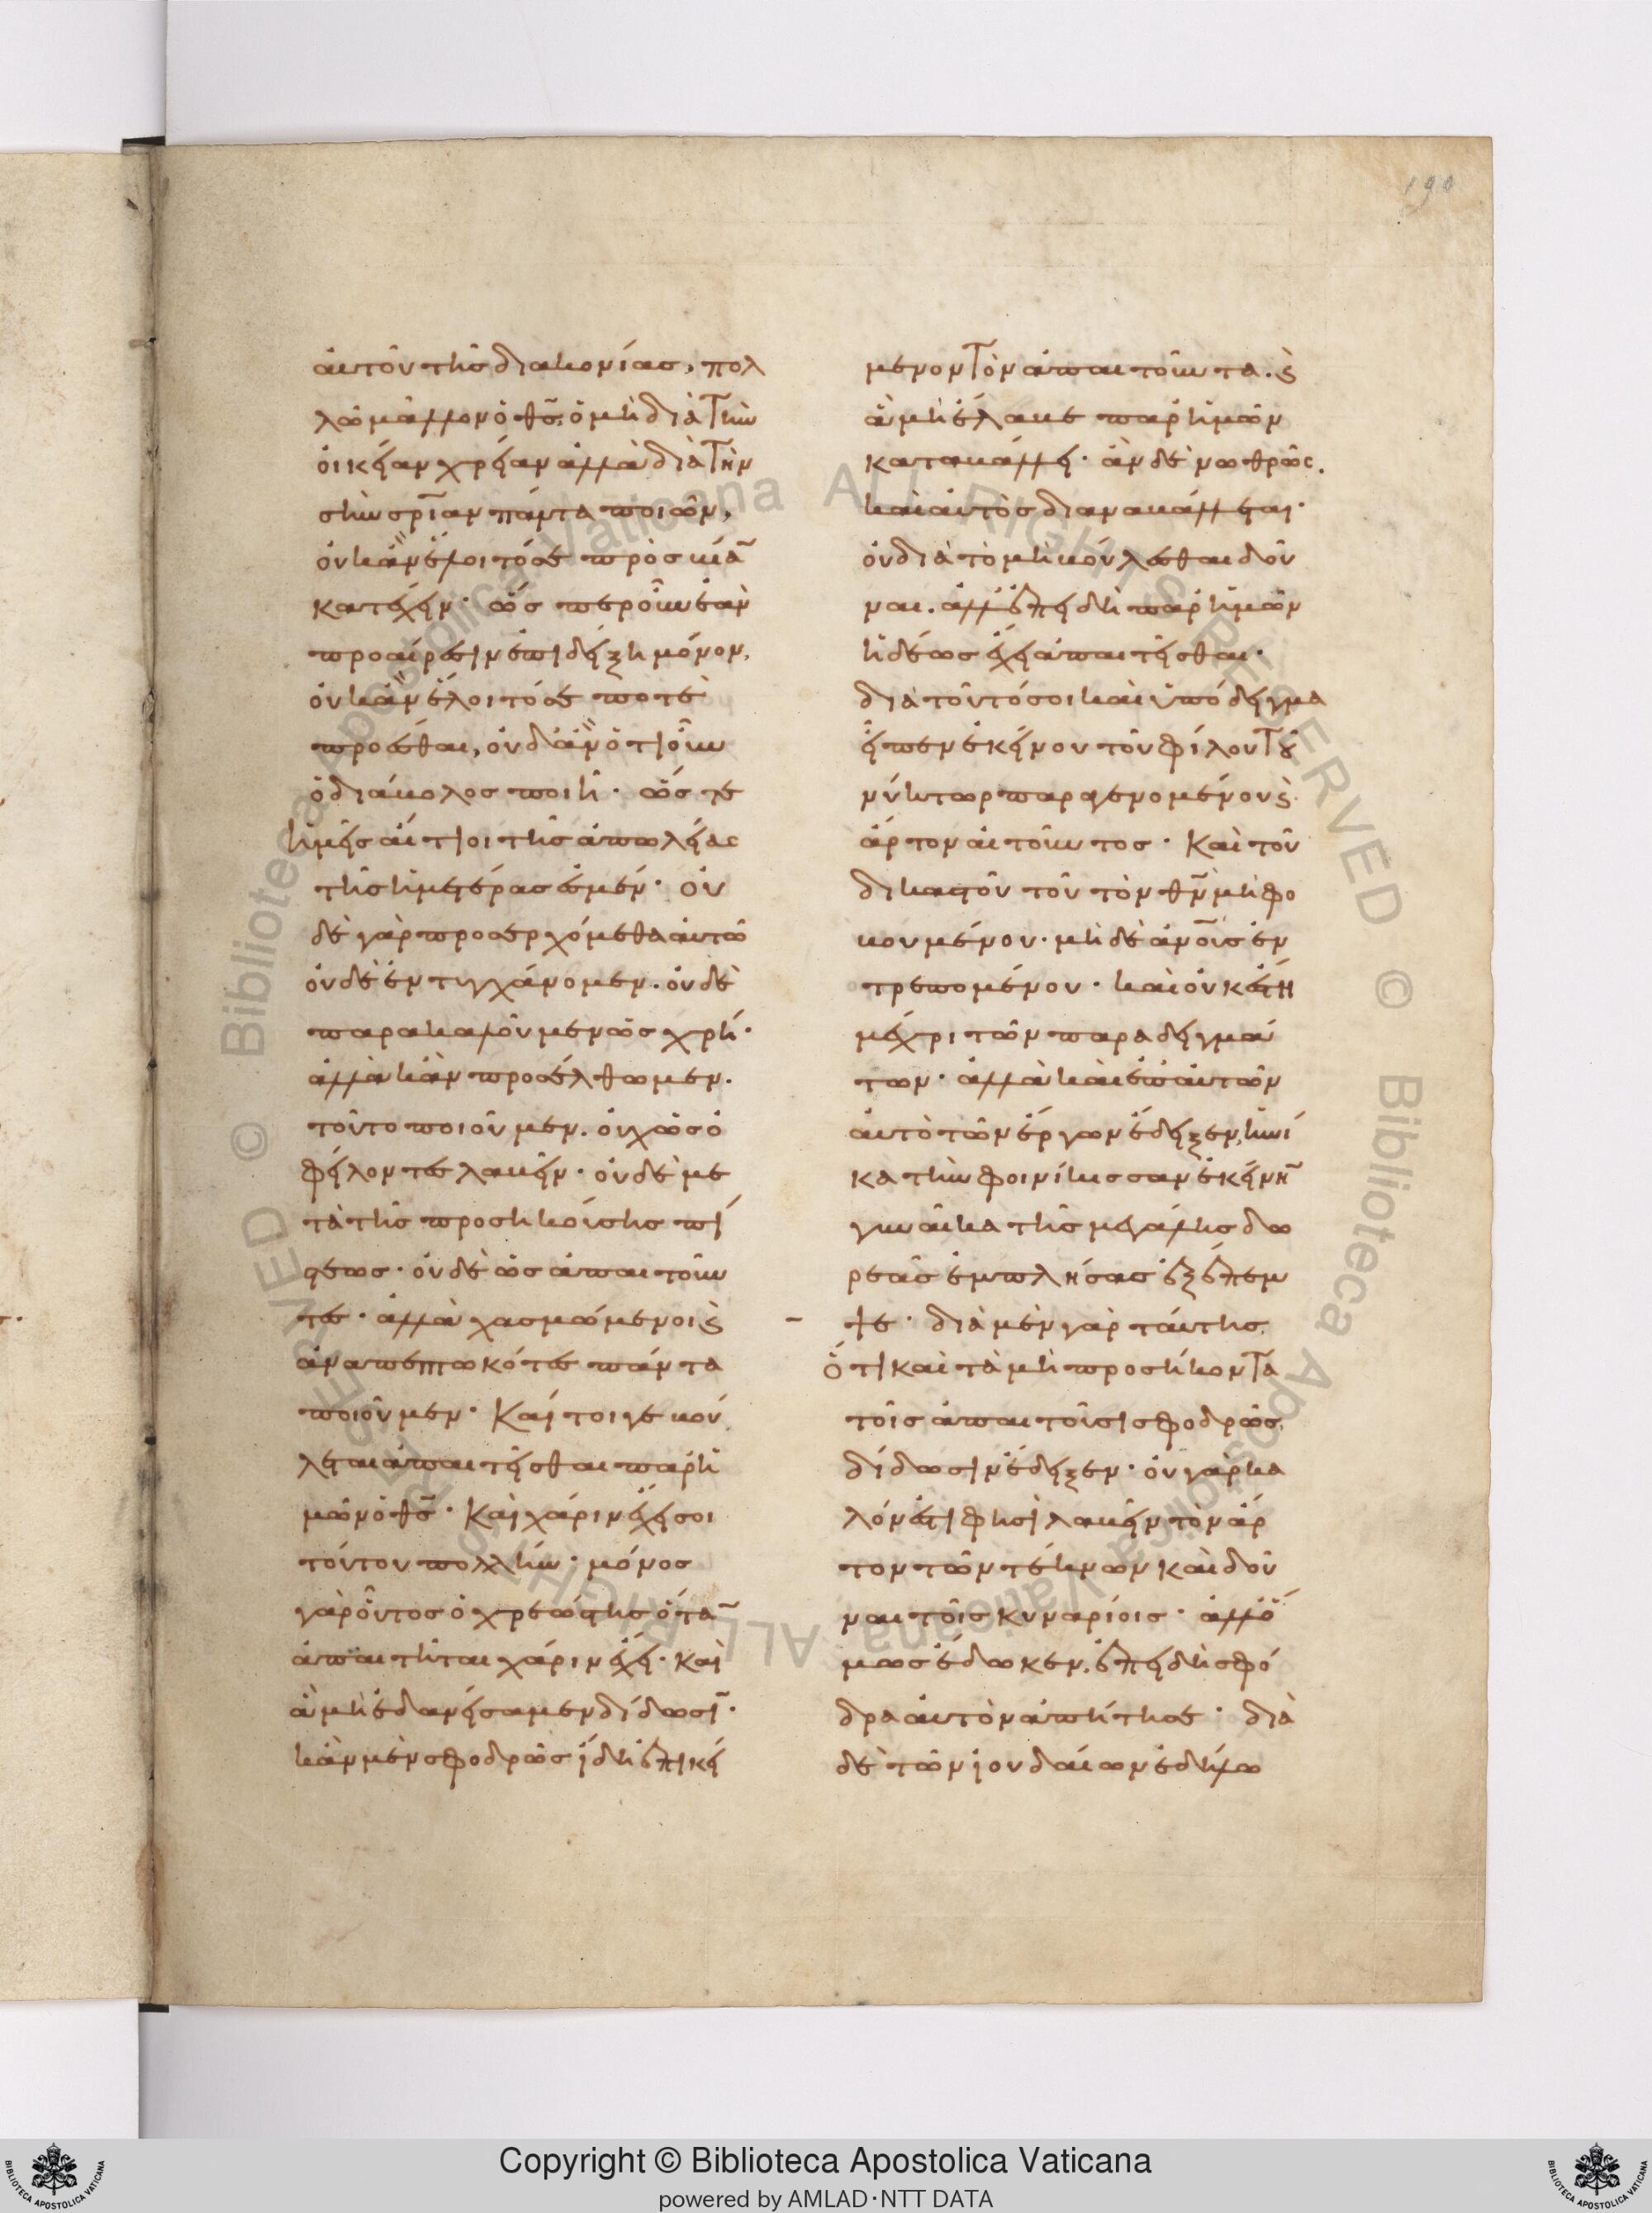 190
αὐτοῦ τῆς διακονίας, πολ
λῶ μᾶλλον ὁ θς̅, ὁ μὴ διὰ τὴν
οἰκείαν χρείαν ἀλλὰ διὰ τὴν
σην σρ̅ίαν πάντα ποιῶν,
οὐκ ἂν ἕλοιτό σε πρὸς βίᾱ
κατέχειν· ὥσπερ οὖν ἐὰν
προαίρεσιν ἐπιδείξη μόνον,
οὐκ ἂν ἕλοιτό σε ποτὲ
προέσθαι, οὐδ' ἂν ὁτιοῦν
ὁ διάβολος ποιῆ· ὥστε
ἡμεῖς αἴτιοι τῆς ἀπωλείας
τῆς ἡμετέρας ἐσμέν· οὐ
δὲ γὰρ προσερχόμεθα αὐτῶ
οὐδὲ ἐντυγχάνομεν. οὐδὲ
παρακαλοῦμεν ὡς χρή·
ἀλλὰ κἂν προσέλθωμεν.
τοῦτο ποιοῦμεν. οὐχ ὡς ὀ
φείλοντες λαβεῖν· οὐδὲ με
τὰ τῆς προσηκούσης πί
στεως· οὐδὲ ὡς ἀπαιτοῦν
τες· ἀλλὰ χασμώμενοι ϗ
ἀναπεπτωκότες πάντα
ποιοῦμεν· Καίτοιγε βού
λεται ἀπαιτεῖσθαι παρ' ἡ
μῶν ὁ θς̅· Καὶ χάριν ἔχει σοι
τούτου πολλήν· μόνος
γὰρ οὗτος ὁ χρεώστης ὅτᾱ
ἀπαιτῆται χάριν ἔχει· καὶ
ἃ μὴ ἐδανείσαμεν δίδωσῑ·
κἂν μὲν σφοδρῶς ἴδη ἐπικεί
μενον τὸν ἀπαιτοῦντα. ϗ
ἃ μὴ ἔλαβε παρ' ἡμῶν
καταβάλλει· ἂν δὲ νωθρῶς.
καὶ αὐτὸς διαναβάλλεται·
οὐ διὰ τὸ μὴ βούλεσθαι δοῦ
ναι. ἀλλ' ἐπειδὴ παρ' ἡμῶν
ἡδέως ἔχει ἀπαιτεῖσθαι·
διὰ τοῦτό σοι καὶ ὑπόδειγμα
εἶπεν ἐκείνου τοῦ φίλου τοῦ
νύκτωρ παραγενομένου ϗ
ἄρτον αἰτοῦντος· Καὶ τοῦ
δικαστοῦ τοῦ τὸν θν̅ μὴ φο
βουμένου· μὴδὲ ἀν̅ους ἐν
τρεπομένου· καὶ οὐκ ἔστη
μέχρι τῶν παραδειγμά
των· ἀλλὰ καὶ ἐπ' αὐτῶν
αὐτὸ τῶν ἔργων ἔδειξεν, ἡνί
κα τὴν φοινίκισσαν ἐκείνη̅
γυναῖκα τῆς μεγάλης δω
ρεᾶς ἐμπλήσας ἐξέπεμ
ψε· διὰ μὲν γὰρ ταύτης,
ὅτι καὶ τὰ μὴ προσήκοντα
τοῖς ἀπαιτοῦσι σφοδρῶς,
δίδωσιν ἔδειξεν· οὐ γὰρ κα
λόν ἐστι φησὶ λαβεῖν τὸν ἄρ
τον τῶν τέκνων καὶ δοῦ
ναι τοῖς κυναρίοις· ἀλλ' ὅ
μως ἔδωκεν, ἐπειδὴ σφό
δρα αὐτὸν ἀπήτησε· διὰ
δὲ τῶν ἰουδαίων ἐδήλω
Copyright © Biblioteca Apostolica Vaticana
powered by AMLAD·NTT DATA